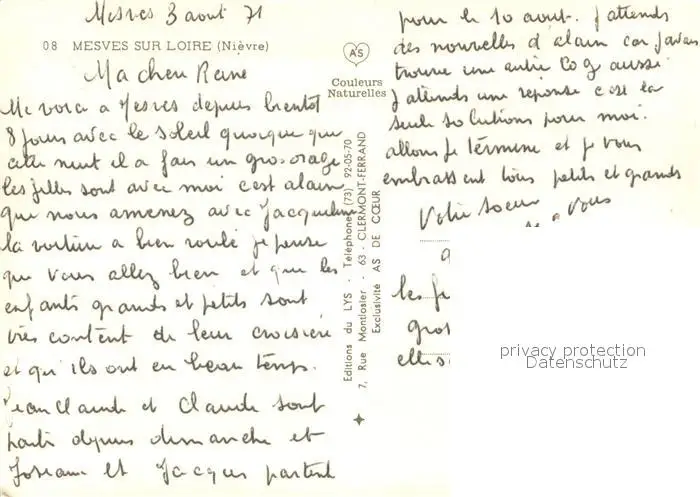 Mesves 3 aout 71
08 MESVES SUR LOIRE (Nièvre)
AS
Couleurs
Naturelles
Ma cher Reine
Me voici a Mesves depuis bientot
8 jours avec le soleil quoique que
cette nuit il a fais un gros orage
les filles sont avec moi c'est alain
que nous amenez avec Jacqueline
la voiture a bien roulé je pense
que vous allez bien et que les
enfants grands et petits sont
très content de leur croisière
et qu'ils ont eu beau temps.
Jean Claude et Claude sont
parti depuis dimanche et
Josiane et Jacques partent
Editions du LYS - Téléphone (73) 92-05-70
7, Rue Montlosier - 63 - CLERMONT-FERRAND
Exclusivité AS DE CŒUR
pour le 10 aout. J'attends
des nouvelles d'alain car j'avais
trouve une autre aussi
J'attends une reponse c'est la
seule solutions pour moi.
allons je termine et je vous
embrassent tous petits et grands
Votre soeur
a vous
les
gros
elles
privacy protection
Datenschutz